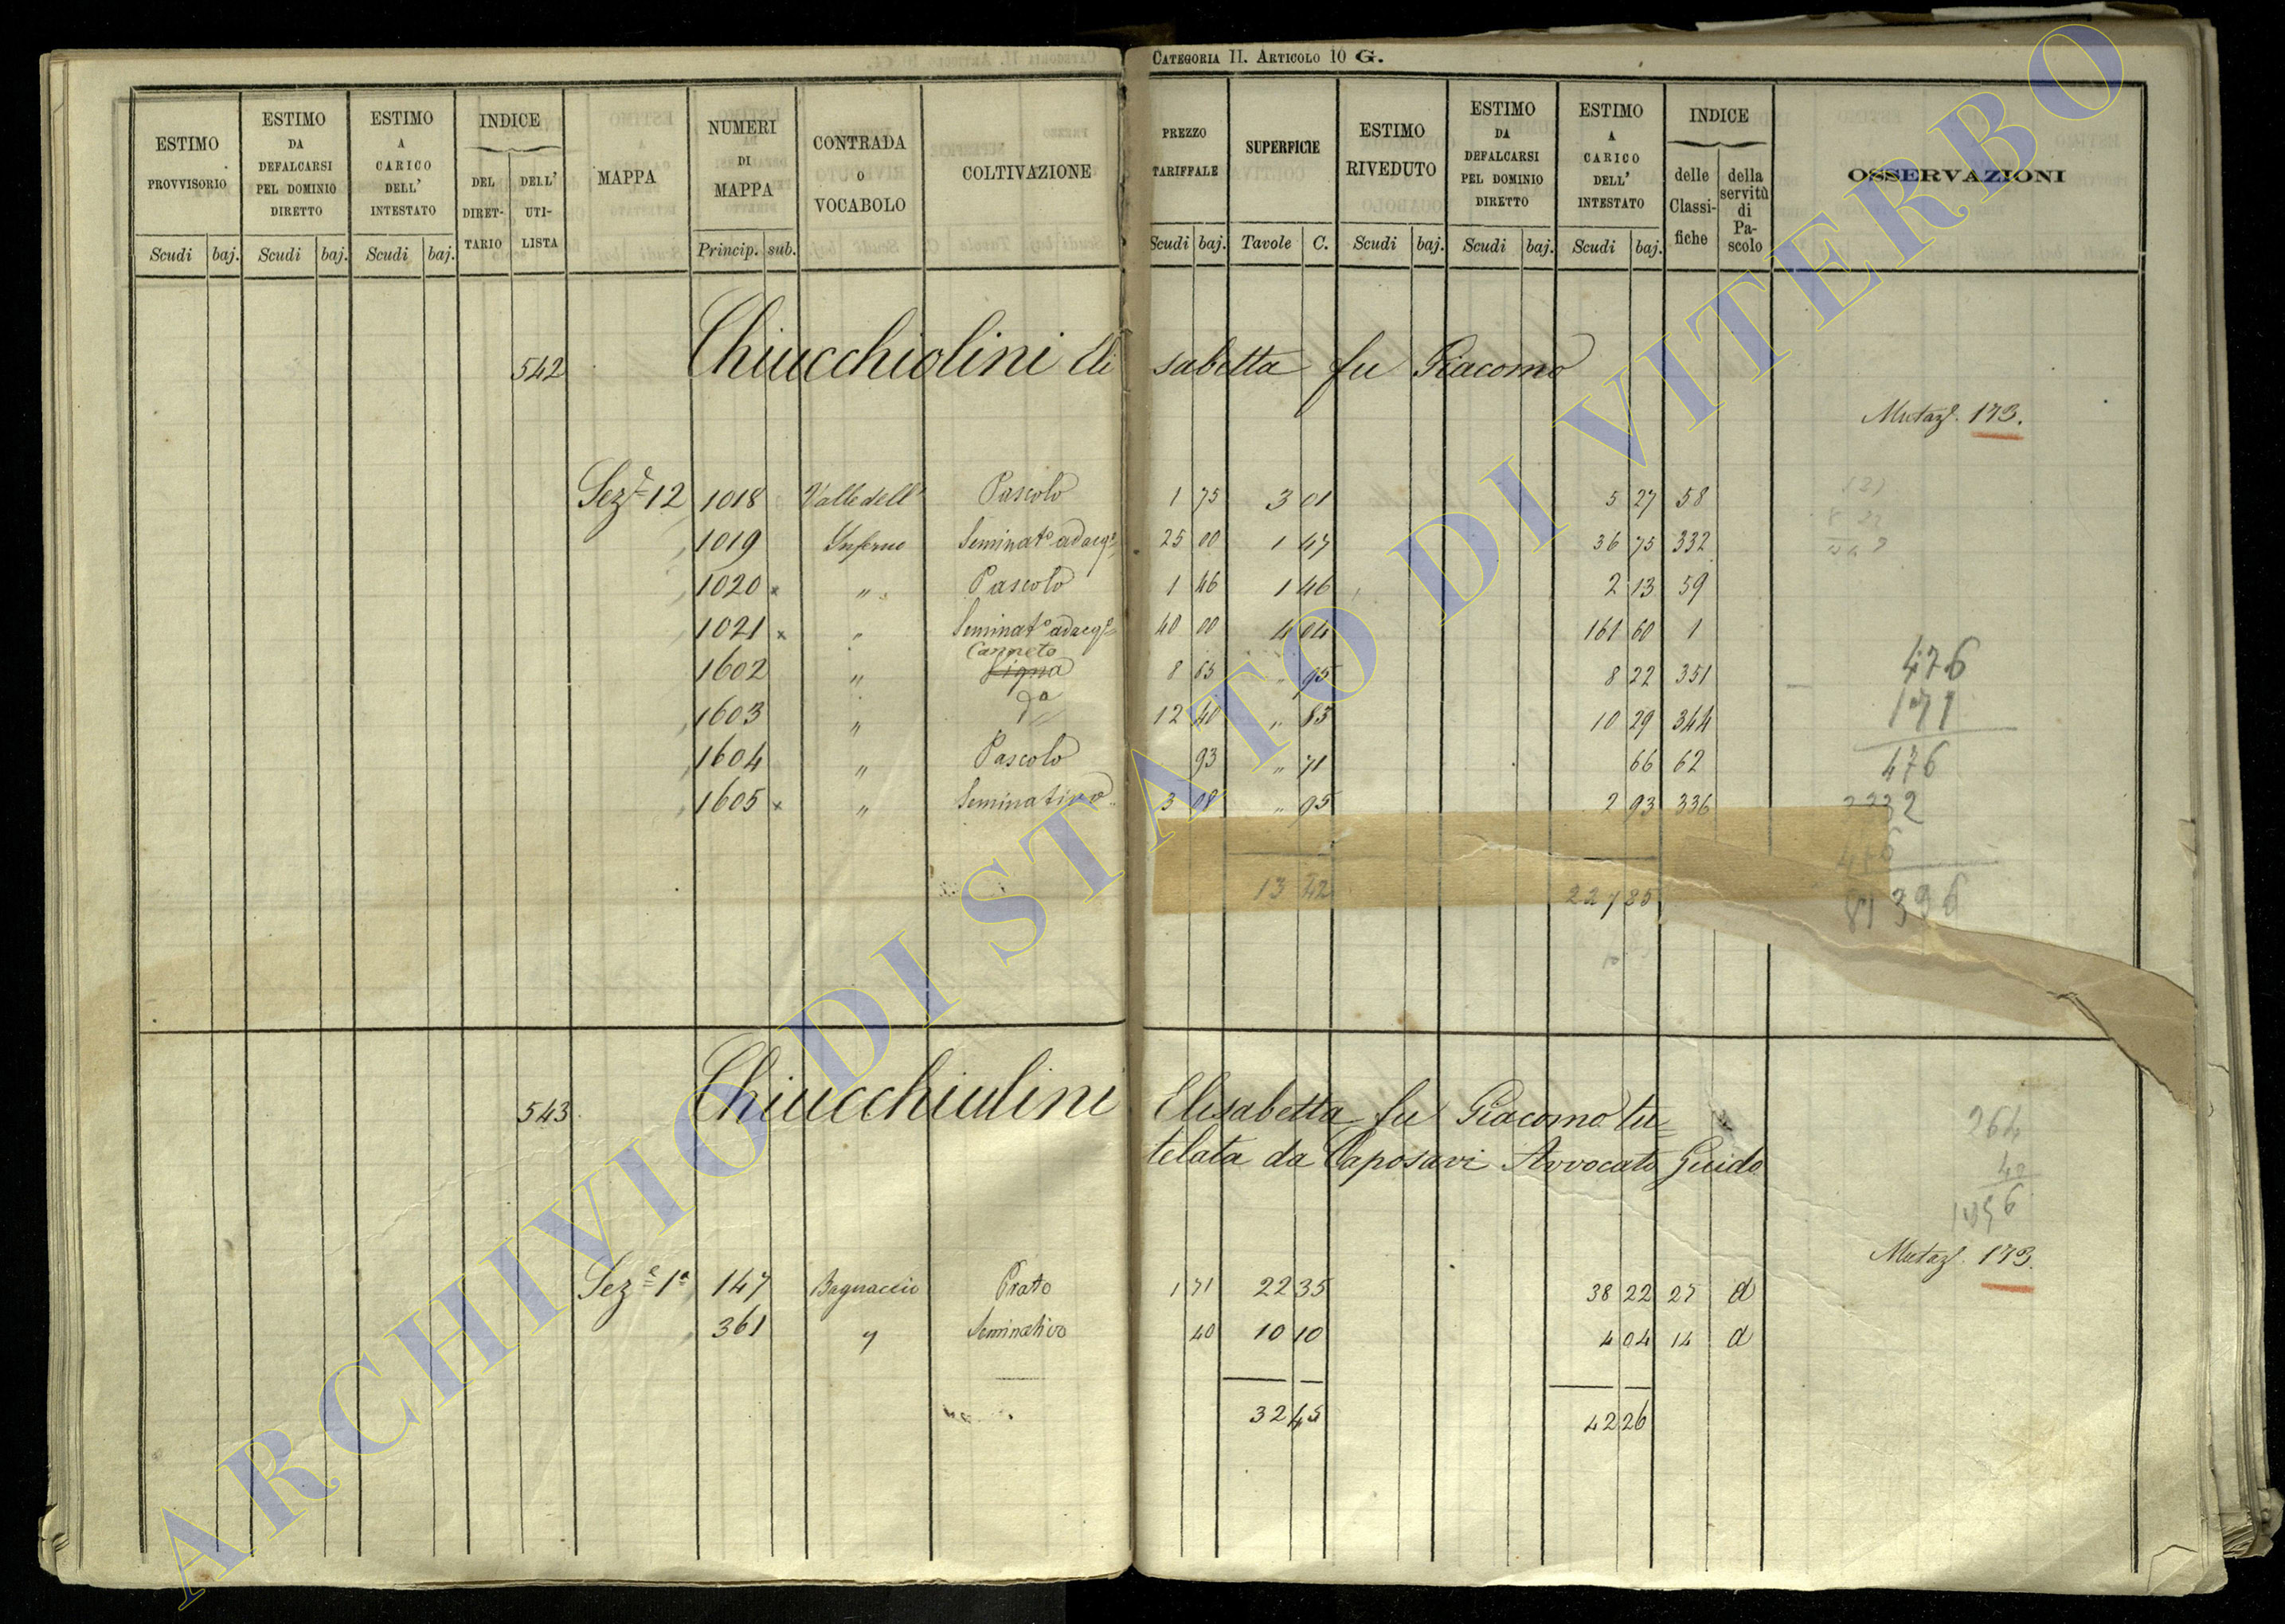 CATEGORIA II. ARTICOLO 10 G.
ESTIMO PROVVISORIO
ESTIMO DA DEFALCARSI PEL DOMINIO DIRETTO
ESTIMO A CARICO DELL' INTESTATO
INDICE
DEL DIRET- TARIO
DELL' UTI- LISTA
MAPPA
NUMERI DI MAPPA
CONTRADA O VOCABOLO
COLTIVAZIONE
PREZZO TARIFFALE
SUPERFICIE
ESTIMO RIVEDUTO
ESTIMO DA DEFALCARSI PEL DOMINIO DIRETTO
ESTIMO A CARICO DELL' INTESTATO
INDICE
delle Classi- fiche
della servitù di Pa- scolo
OSSERVAZIONI
Scudi baj. Scudi baj. Scudi baj. Princip. sub. Scudi baj. Tavole C. Scudi baj. Scudi baj. Scudi baj.
542 Chiucchiolini Elisabetta fu Giacomo
Mutaz. 173.
Sez.e 12 1018 Valle dell' Pascolo 1 75 3 01 5 27 58
1019 Inferno Seminat.o adacq.e 25 00 1 47 36 75 332
1020 x " Pascolo 1 46 1 46 2 13 59
1021 x " Seminat.o adacq.e 40 00 4 04 161 60 1
Canneto
1602 " Vigna 8 65 " 95 8 22 351
1603 " Da 12 40 " 83 10 29 344
1604 " Pascolo 93 " 71 66 62
1605 x " Seminativo 3 08 " 95 2 93 336
13 42 227 85
476
171
476
81396
543 Chiucchiulini Elisabetta fu Giacomo tu=
telata da Caposavi Avvocato Guido
264
42
1056
Mutaz. 173.
Sez.e 1a 147 Bagnaccio Prato 1 71 22 35 38 22 27 d
361 " Seminativo 40 10 10 4 04 14 d
32 45 42 26
ARCHIVIO DI STATO DI VITERBO